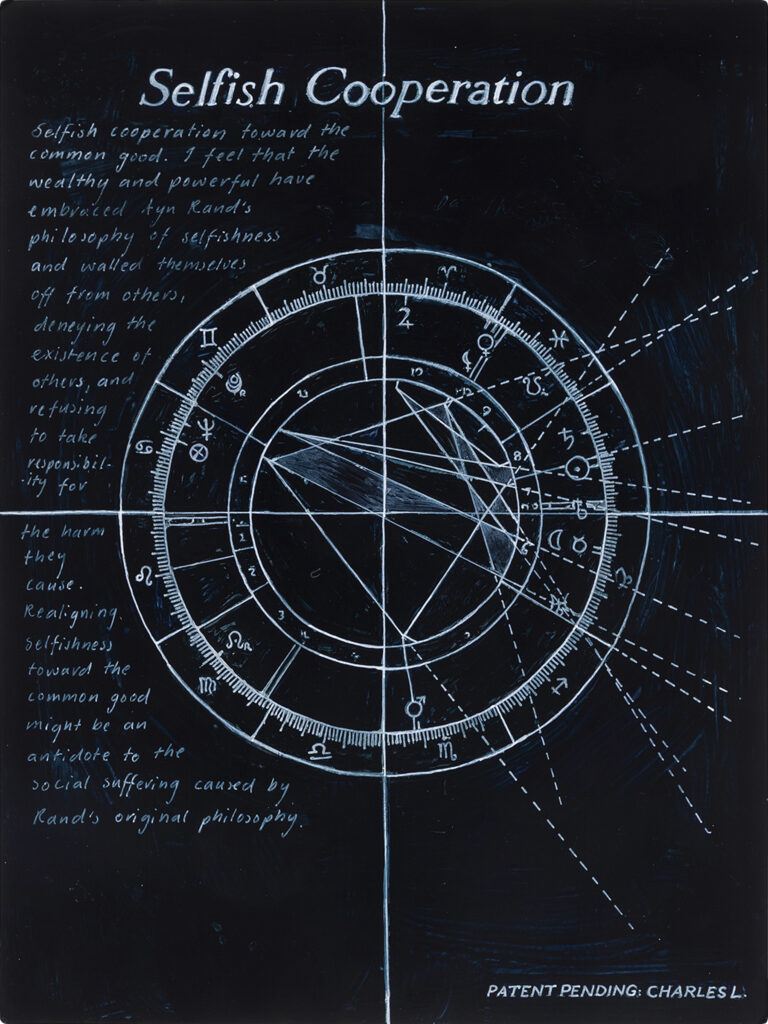 Selfish Cooperation
Selfish cooperation toward the
common good. I feel that the
wealthy and powerful have
embraced Ayn Rand's
philosophy of selfishness
and walled themselves
off from others,
deneying the
existence of
others, and
refusing
to take
responsibil-
ity for
the harm
they
cause.
Realigning
selfishness
toward the
common good
might be an
antidote to the
social suffering caused by
Rand's original philosophy.
PATENT PENDING: CHARLES L.